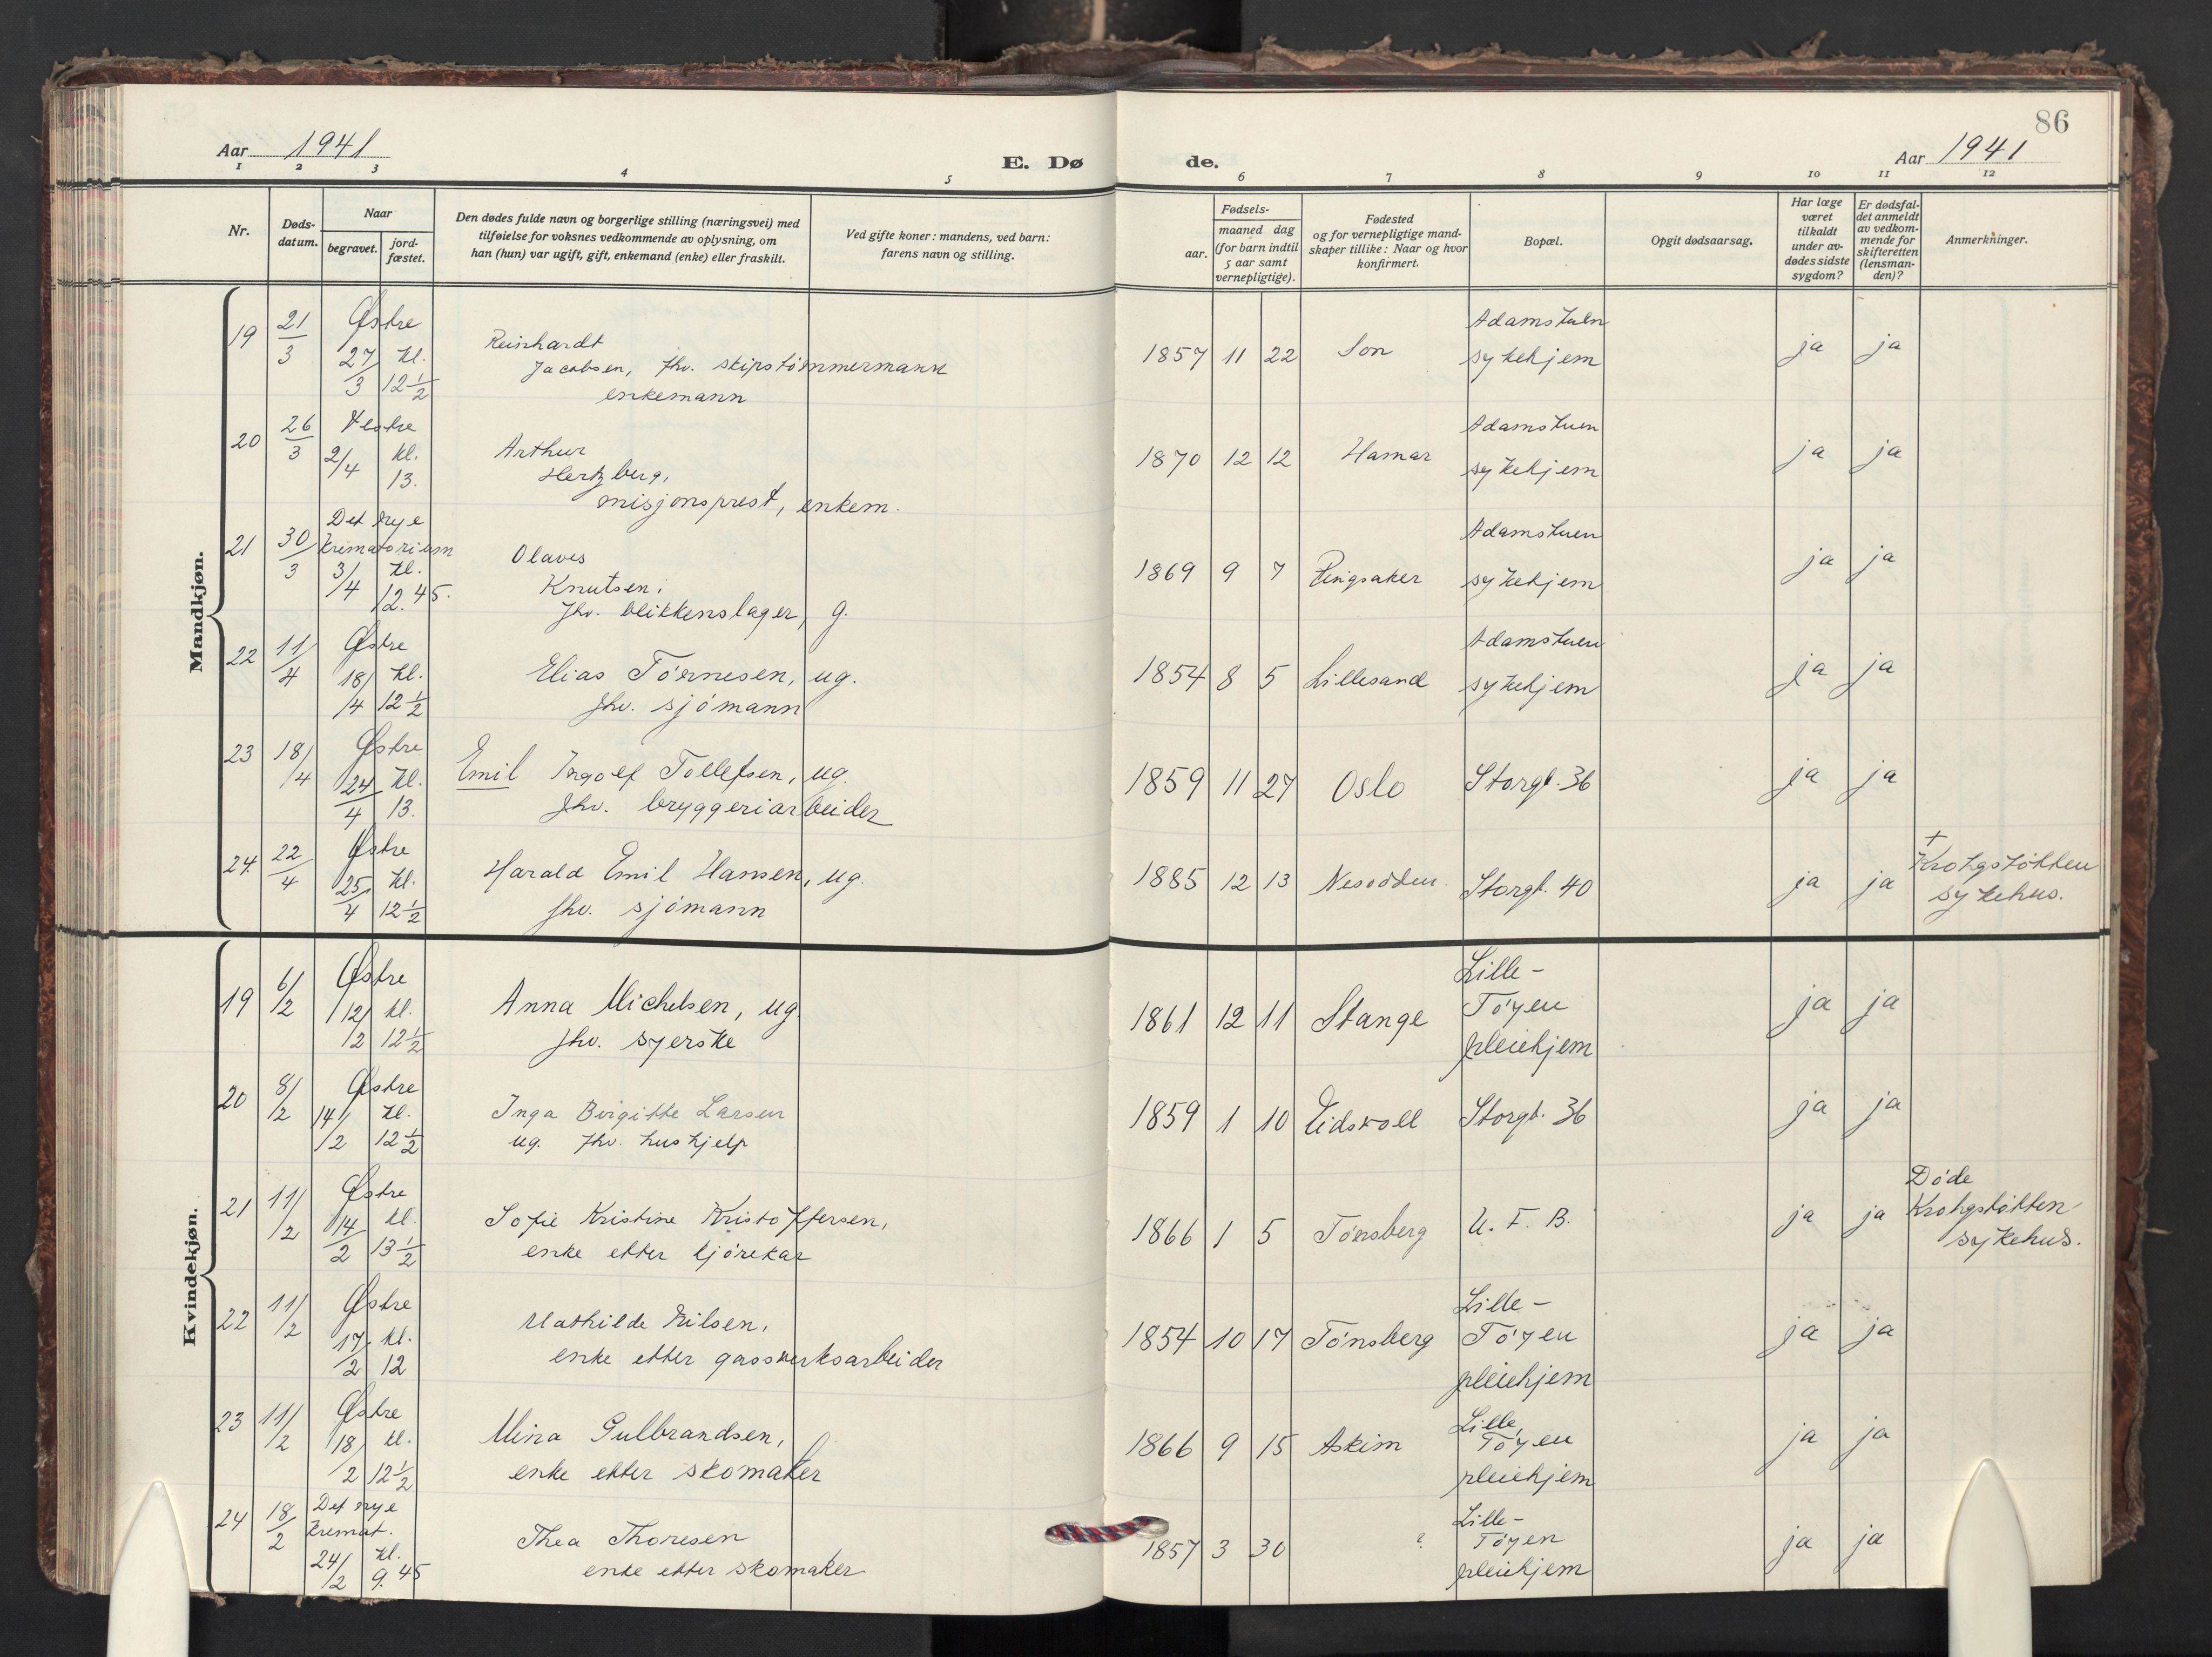 86
Aar 1941
E. Dø
de.
Aar 1941
1 2 3 4 5 6 7 8 9 10 11 12
Nr.
Døds-
datum.
Naar
begravet.
jord-
fæstet.
Den dødes fulde navn og borgerlige stilling (næringsvei) med
tilføielse for voksnes vedkommende av oplysning, om
han (hun) var ugift, gift, enkemand (enke) eller fraskilt.
Ved gifte koner: mandens, ved barn:
farens navn og stilling.
Fødsels-
aar.
maaned dag
(for barn indtil
5 aar samt
vernepligtige).
Fødested
og for vernepligtige mand-
skaper tillike: Naar og hvor
konfirmert.
Bopæl.
Opgit dødsaarsag.
Har læge
været
tilkaldt
under av-
dødes sidste
sygdom?
Er dødsfal-
det anmeldt
av vedkom-
mende for
skifteretten
(lensman-
den)?
Anmerkninger.
Mandkjøn.
19 21/3 Østre
27/3 kl. 12 1/2
Reinhardt
Jacobsen, fhv. skipstømmermann
enkemann
1857 11 22 Son
Adamstuen
sykehjem
ja ja
20 26/3 Vestre
2/4 kl. 13.
Arthur
Hertzberg,
misjonsprest, enkem.
1870 12 12 Hamar
Adamstuen
sykehjem
ja ja
21 30/3 Det nye
Krematorium
3/4 kl. 12.45.
Olaves
Knutsen,
fhv. blikkenslager, g.
1869 9 7 Ringsaker
Adamstuen
sykehjem
ja ja
22 11/4 Østre
18/4 kl. 12 1/2
Elias Tørnesen, ug.
fhv. sjömann
1854 8 5 Lillesand
Adamstuen
sykehjem
ja ja
23 18/4 Østre
24/4 kl. 13.
Emil Ingolf Tollefsen, ug.
fhv. bryggeriarbeider
1859 11 27 Oslo Storgt. 36 ja ja
24. 22/4 Østre
25/4 kl. 12 1/2
Harald Emil Hansen, ug.
fhv. sjömann
1885 12 13 Nesodden. Storgt. 40 ja ja
+
Krohgstötten
sykehus.
Kvindekjøn.
19 6/2 Østre
12/2 kl. 12 1/2
Anna Michelsen, ug.
fhv. syerske
1861 12 11 Stange
Lille-
Töyen
pleiehjem
ja ja
20 8/2 Østre
14/2 kl. 12 1/2
Inga Birgitte Larsen
ug. fhv. hushjelp
1859 1 10 Eidsvoll Storgt. 36 ja ja
21 11/2 Østre
14/2 kl. 13 1/2
Sofie Kristine Kristoffersen,
enke etter kjörekar
1866 1 5 Tönsberg U. F. B. ja ja
Döde
Krohgstötten
sykehus.
22 11/2 Østre
17/2 kl. 12
Mathilde Nilsen,
enke etter gassverksarbeider
1854 10 17 Tönsberg
Lille-
Töyen
pleiehjem
ja ja
23 11/2 Østre
18/2 kl. 12 1/2
Mina Gulbrandsen,
enke etter skomaker
1866 9 15 Askim
Lille,
Töyen
pleiehjem
ja ja
24 18/2 Det nye
Kremat.
24/2 kl. 9.45
Thea Thoresen
enke etter skomaker
1857 3 30 ?
Lille-
Töyen
pleiehjem
ja ja